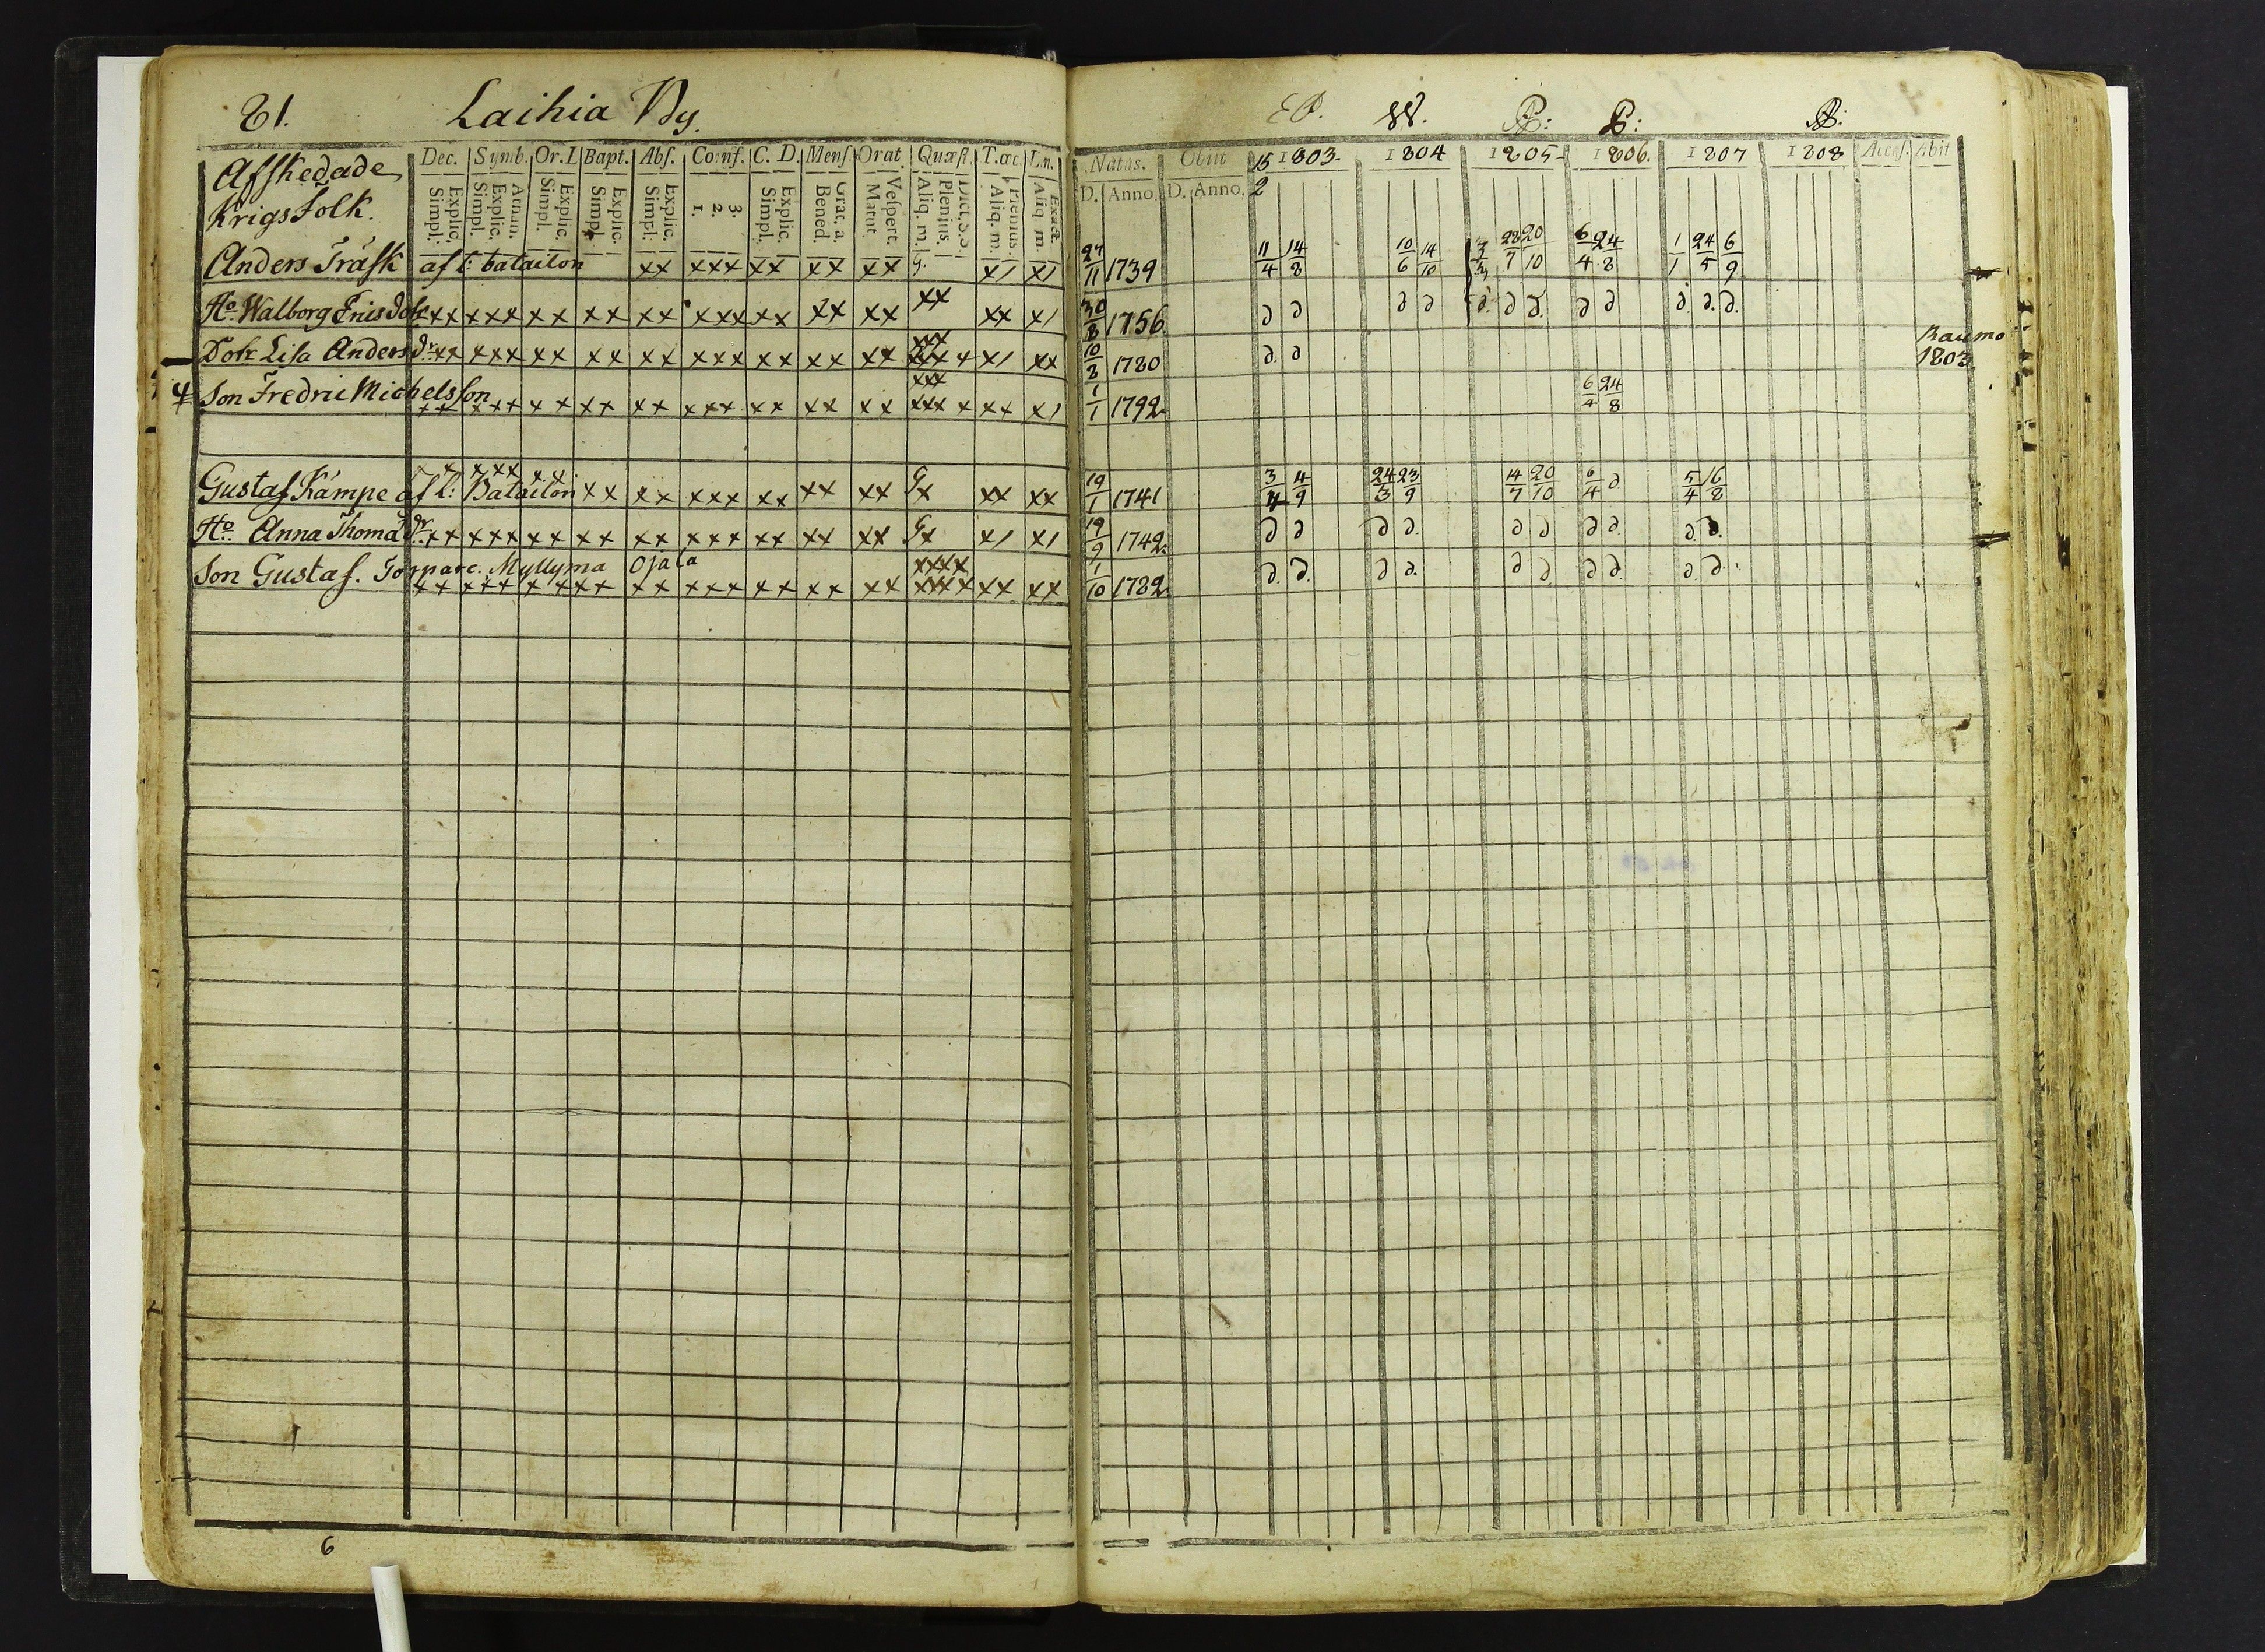 81. Laihia By.
Afskedade Krigsfolk.
Dec. Symb. Or. D. Bapt. Abs. Conf. C. D. Mens. Orat. Quæst. T. œc. L. n.
Explic. Simpl. Athan. Explic. Simpl. Explic. Simpl. Explic. Simpl. Explic. Simpl. 3. 2. 1. Explic. Simpl. Grat. a. Bened. Vespert. Matut. Dict. S. S. Plenius. Aliq. m. Plenius. Aliq. m. Exact. Aliq. m.
Anders Träsk af L: batailon xx xxx xx xx xx G. x/ x/
Ho. Walborg xx xxx xx xx xx xxx xx xx xx xx xx x/
Dotr Lisa Andersdr. xx xxx xx xx xx xxx xx xx xx xxx x/ xx
Son Fredric Michelsson xx xxx xx xx xx xxx xx xx xx xxx xxx x xx x/
Gustaf Kämpe af L: Batailon x xxx xx xx xx xxx xx xx xx Gx xx xx
Ho. Anna Thomadr. xx xxx xx xx xx xxx xx xx xx Gx x/ x/
Son Gustaf. Torpare. Myllyma Ojala xxxx
xx xxx x xxx xx xxx xx xx xx xxx x xx xx
6
W. B:
Natus. Obiit 15/2 1803. 1804 1805 1806. 1807 1808 Access. Abiit
D. Anno. D. Anno.
27/11 1739 11/4 14/8 10/6 14/10 28/7 20/10 6/4 24/8 1/1 24/5 6/9
30/8 1756. d d d d d. d d. d d d. d. d.
10/8 1780 d. d Raumo 1803
1/1 1792. 6/4 24/8
19/1 1741 3/4 4/9 24/3 23/9 14/7 20/10 6/4 d 5/4 16/8
19/9 1742. d d d d. d d d d. d. d.
1/10 1782. d. d. d d. d d. d d. d. d.